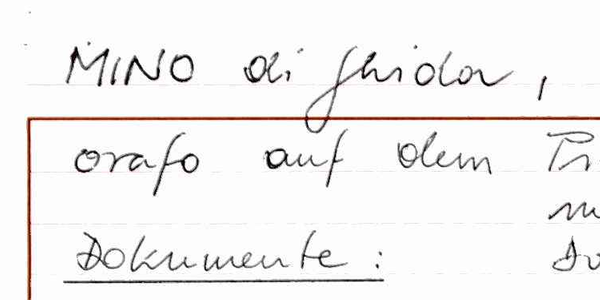 MINO di Ghidor,
orafo auf dem
Dokumente: